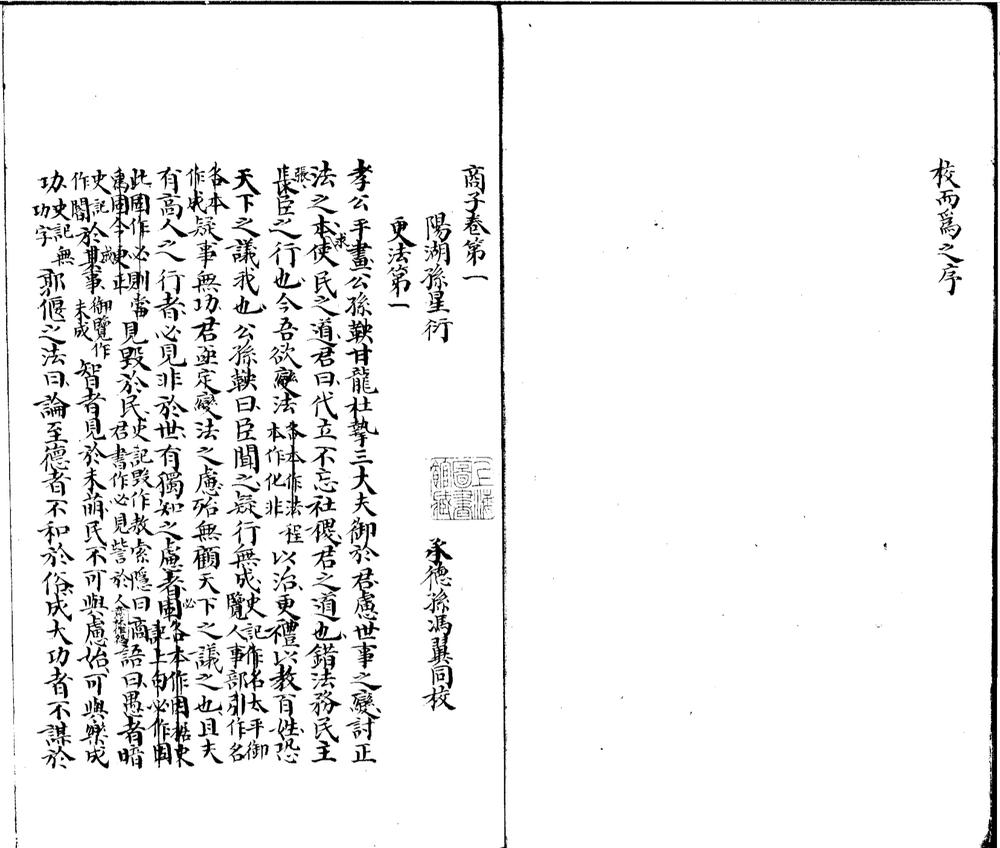 校而為之序
商子卷第一
陽湖孫星衍
承德孫馮翼同校
更法第一
孝公平畫公孫鞅甘龍杜摯三大夫御於君慮世事之變討正
法之本求使民之道君曰代立不忘社稷君之道也錯法務民主
張臣之行也今吾欲變法各本作法非本作化程以治更禮以教百姓恐
天下之議我也公孫鞅曰臣聞之疑行無成史記作名太平御覽人事部引作名
各本作成疑事無功君亟定變法之慮殆無顧天下之議之也且夫
有高人之行者必見非於世有獨知之慮者必各本作固據史
此固作必則當見毀於民史記毀作敖索隱曰商君書作必見訾於人語曰愚者暗
史記作闇於成事御覽作未成智者見於未萌民不可與慮始可與樂成
功史記無功字郭偃之法曰論至德者不和於俗成大功者不謀於
上海圖書館藏